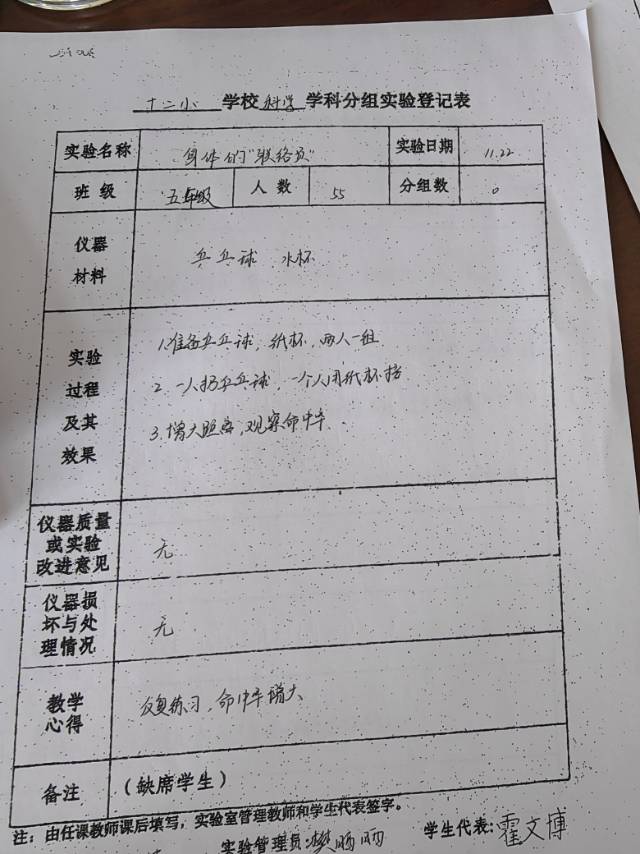 十二小 学校 科学 学科分组实验登记表
实验名称 身体的"联络员" 实验日期 11.22
班级 五年级 人数 55 分组数 0
仪器
材料
乒乓球 水杯
实验
过程
及其
效果
1.准备乒乓球,纸杯,两人一组
2.一人扔乒乓球,一个人用纸杯接
3.增大距离,观察命中率.
仪器质量
或实验
改进意见
无
仪器损
坏与处
理情况
无
教学
心得
反复练习,命中率增大
备注 (缺席学生)
注:由任课教师课后填写,实验室管理教师和学生代表签字。
实验管理员: 学生代表:霍文博